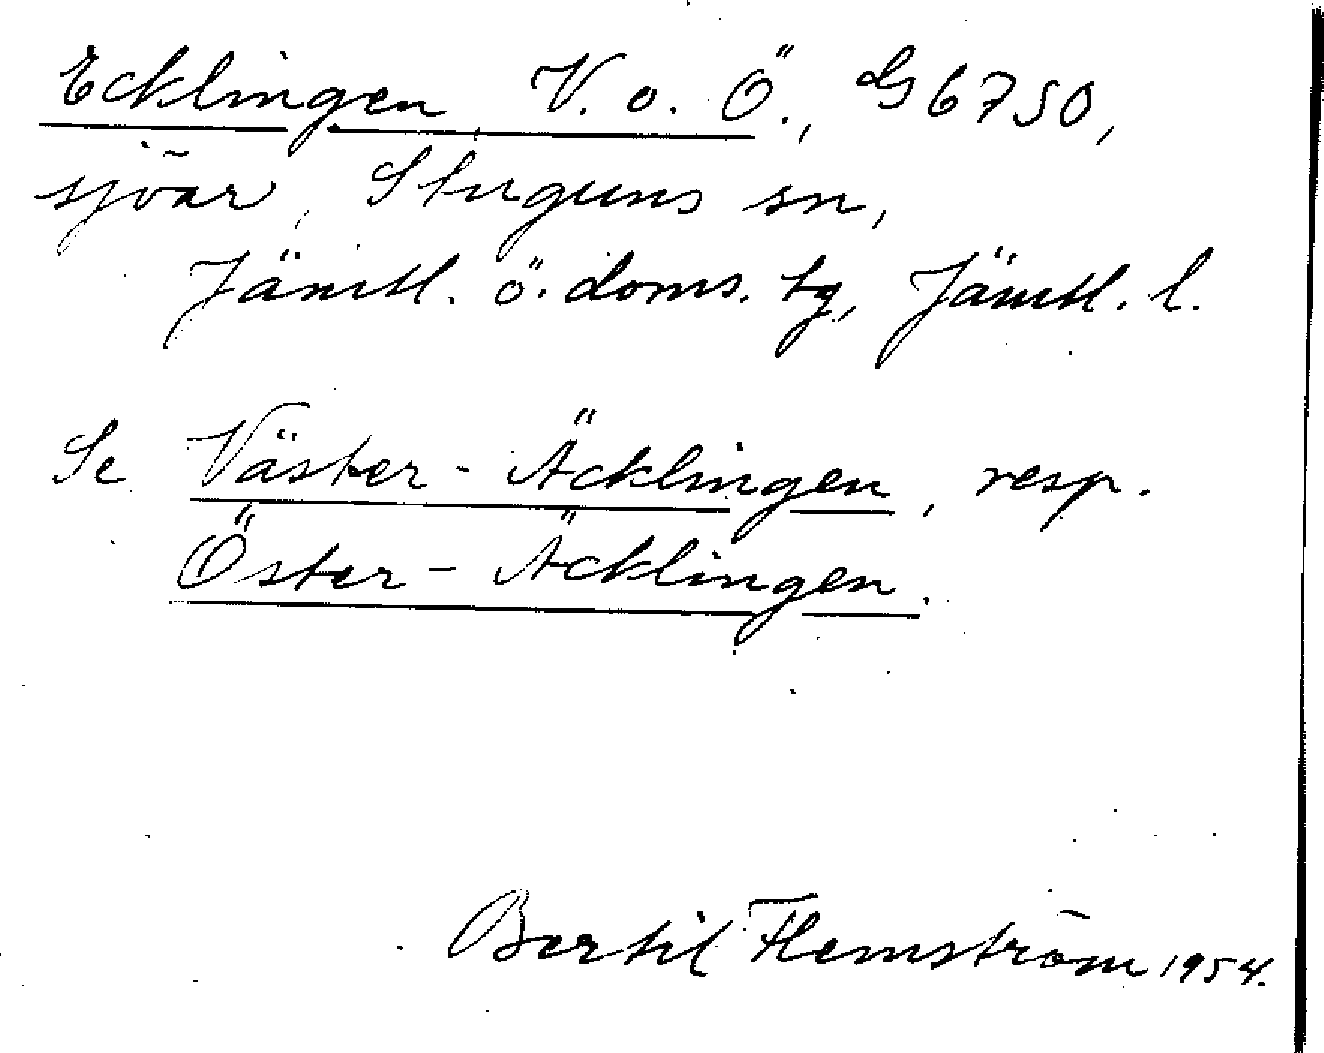 Ecklingen, V. o. Ö., G 6750,
sjöar, Stuguns sn,
Jämtl. ö. doms. tg, Jämtl. l.
Se Väster-Äcklingen, resp.
Öster-Äcklingen.
Bertil Flemström 1954.